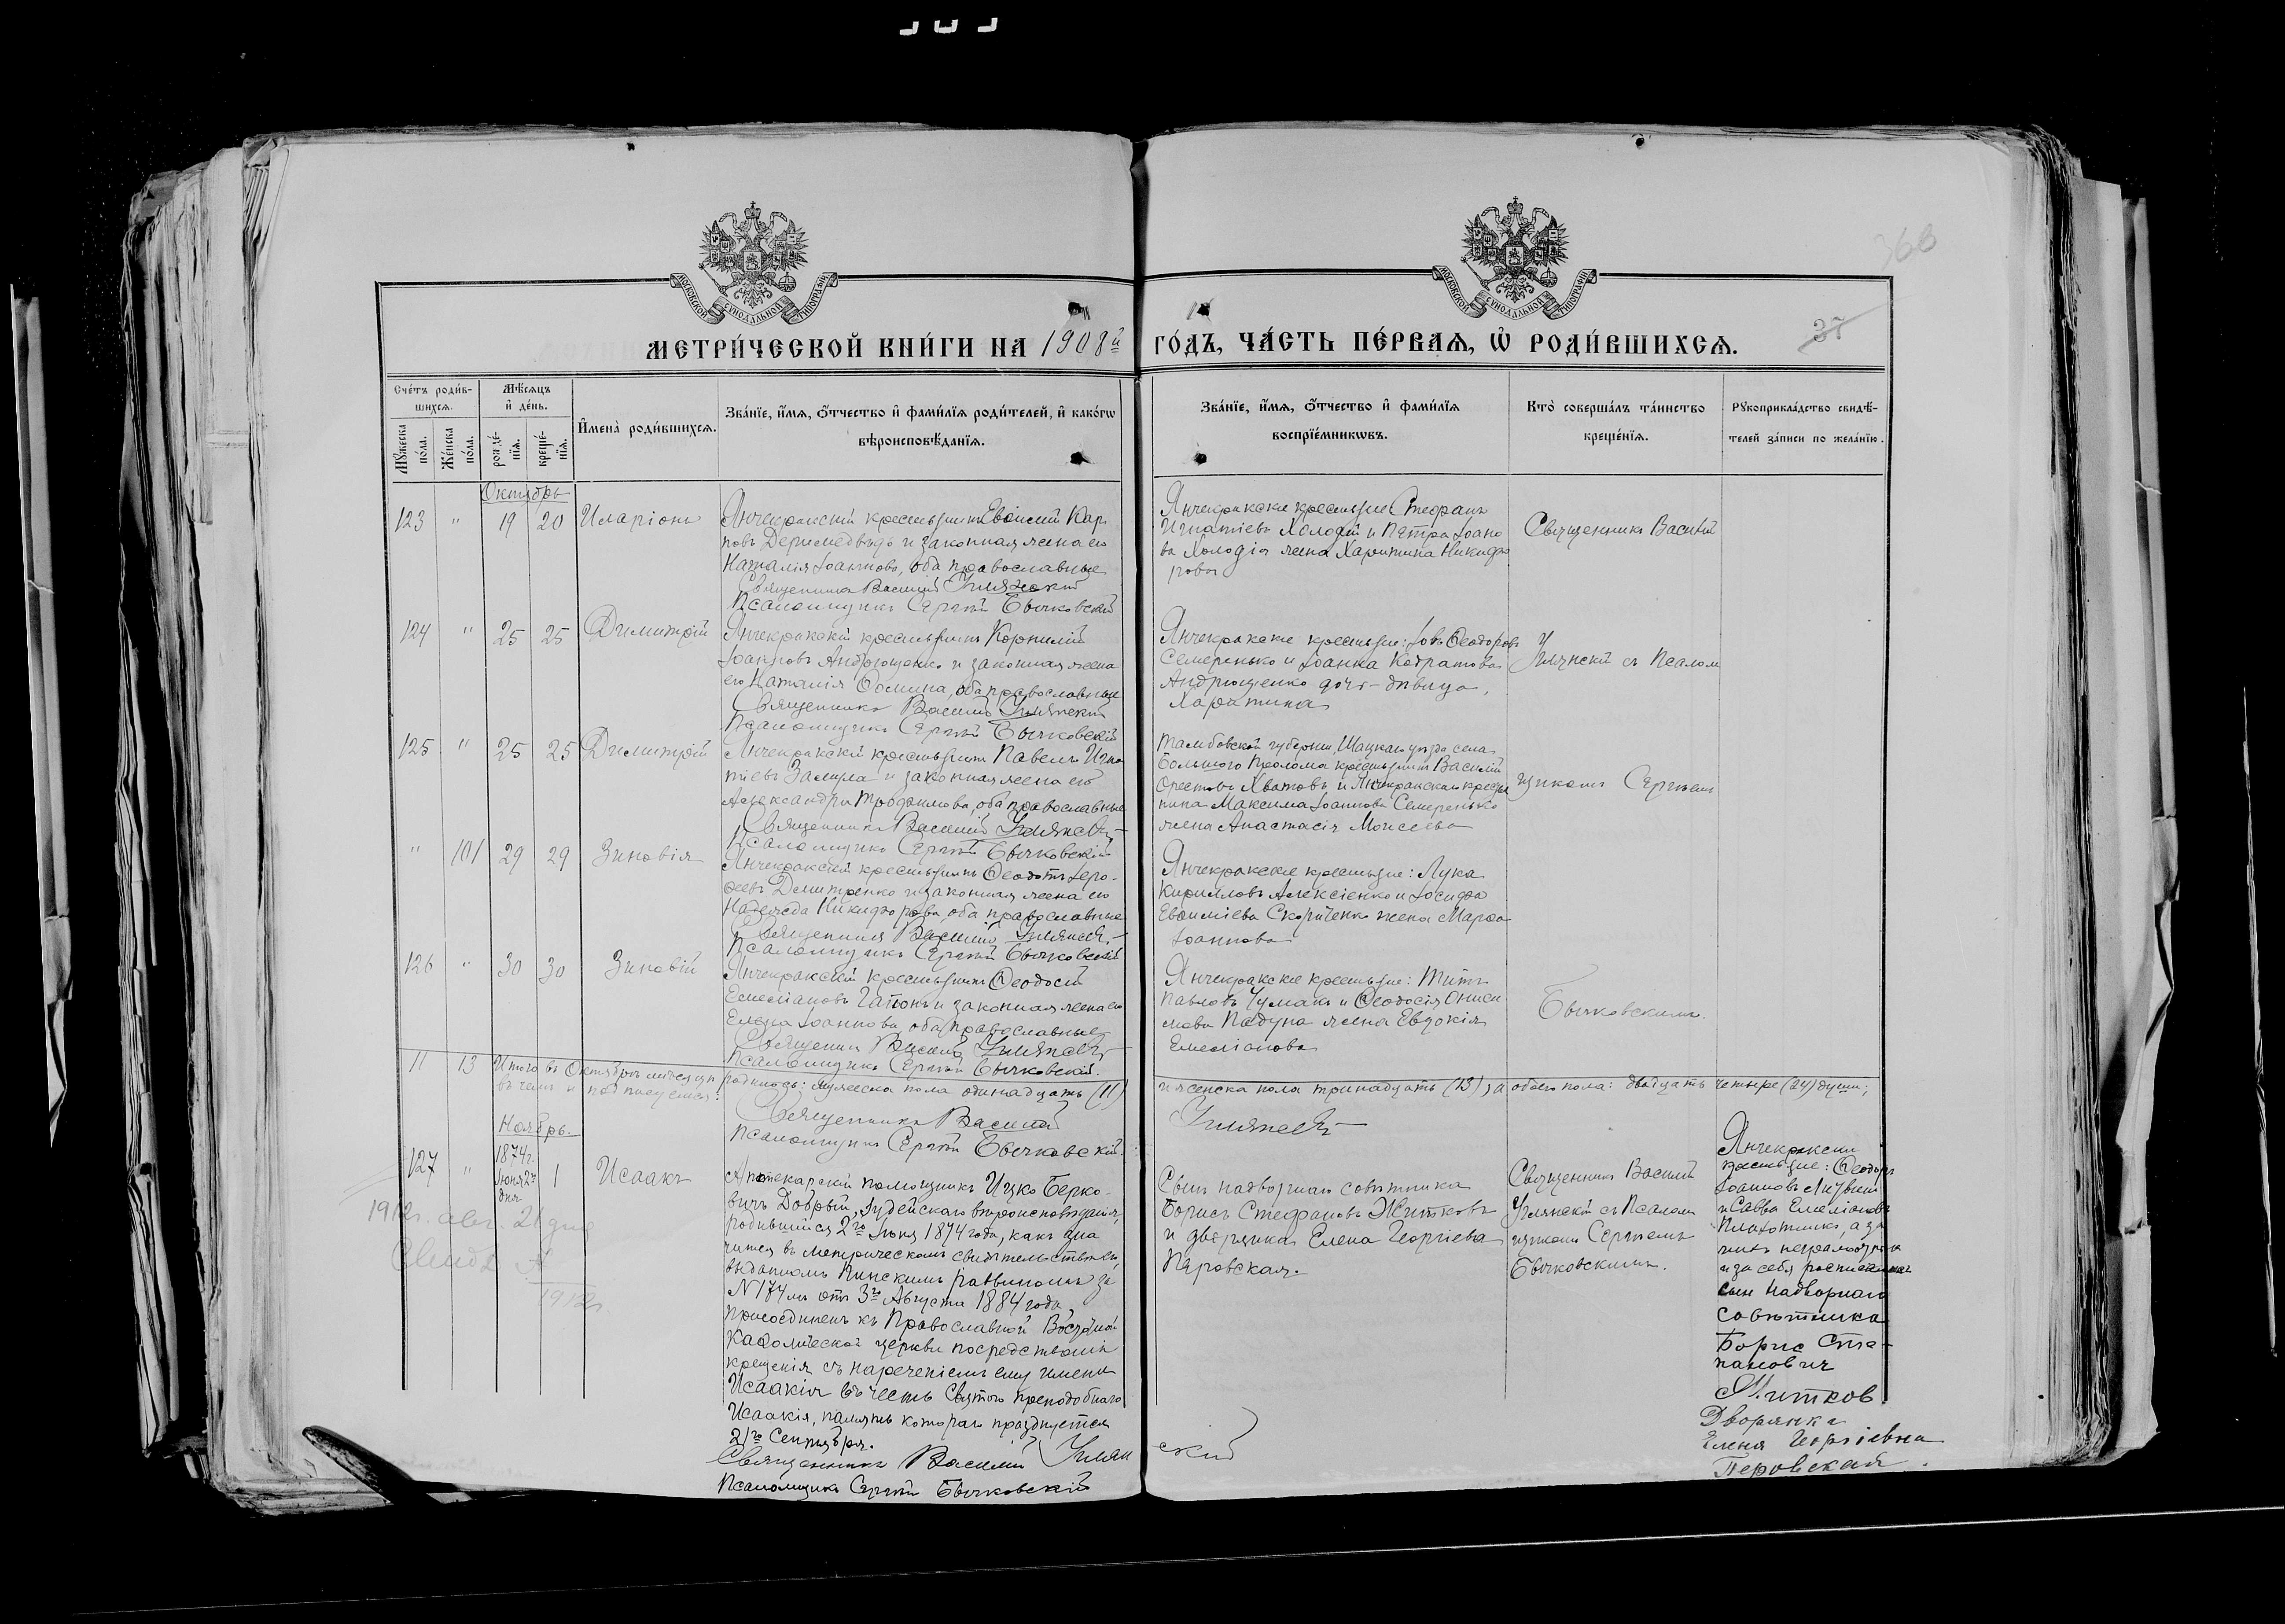 366
МОСКОВСКОЙ СѴНОДАЛЬНОЙ ТИПОГРАФІИ
МОСКОВСКОЙ СѴНОДАЛЬНОЙ ТИПОГРАФІИ
МЕТРИ́ЧЕСКОЙ КНИ́ГИ НА 1908й ГО́ДЪ, ЧА́СТЬ ПЕ́РВАЯ, Ѿ РОДИ́ВШИХСЯ.
37
Сче́тъ роди́в-
шихся.
Мꙋ́жеска по́ла.
Же́нска по́ла.
Мѣ́сяцъ
и҆ де́нь.
рожде́-
нїя.
креще́-
нїя.
И҆мена̀ роди́вшихся.
Зва́нїе, и҆́мя, ѻ҆́тчество и҆ фами́лїя роди́телей, и҆ како́гѡ
вѣроисповѣ́данїя.
Зва́нїе, и҆́мя, ѻ҆́тчество и҆ фами́лїя
воспрїе́мникѡвъ.
Кто̀ соверша́лъ та́инство
креще́нїя.
Рꙋкоприкла́дство свидѣ́-
телей за́писи по жела́нїю.
Октябрь
123 " 19 20 Иларіонъ
Янчекракскій крестьянинъ Евѳимій Кар
повъ Дермедвѣдь и законная жена его
Наталія Іоаннова, оба православные
Священникъ Василій Умянскій
Псаломщикъ Сергѣй Бычковскій
Янчекракскіе крестьяне Стефанъ
Игнатіевъ Холодій и Петра Іоано
ва Холодія жена Харитина Никифо
рова
Священникъ Василій
124 " 25 25 Димитрій
Янчекракскій крестьянинъ Корнилій
Іоанновъ Андрющенко и законная жена
его Наталія Ѳомина, оба православные
Священникъ Василій Умянскій
Псаломщикъ Сергѣй Бычковскій
Янчекракскіе крестьяне: Іовъ Ѳеодоровъ
Семеренько и Іоанна Кодратова
Андрющенко дочь-дѣвица,
Харитина
Умянскій съ Псалом
125 " 25 25 Димитрій
Янчекракскій крестьянинъ Павелъ Игна
тіевъ Замула и законная жена его
Александра Трофимова, оба православные
Священникъ Василій Умянскій
Псаломщикъ Сергѣй Бычковскій
Тамбовской губерніи, Шацкаго уѣзда села
Большого Пролома крестьянинъ Василій
Орестовъ Хватовъ и Янчекракскаго крестья
нина Максима Іоаннова Семеренько
жена Анастасія Моисеева
щикомъ Сергѣемъ
" 101 29 29 Зиновія
Янчекракскій крестьянинъ Ѳеодотъ Іеро-
ѳеевъ Дмитренко и законная жена его
Надежда Никифорова, оба православные
Священникъ Василій Умянскій
Псаломщикъ Сергѣй Бычковскій
Янчекракскіе крестьяне: Лука
Кирилловъ Алексіенко и Іосифа
Евѳиміева Скориченко жена Марѳа
Іоаннова
126 " 30 30 Зиновій
Янчекракскій крестьянинъ Ѳеодосій
Емеліановъ Гапонъ и законная жена его
Елена Іоаннова, оба православные
Священникъ Василій Умянскій
Псаломщикъ Сергѣй Бычковскій.
Янчекракскіе крестьяне: Титъ
Павловъ Чумакъ и Ѳеодосія Ониси
мова Падуна жена Евдокія
Емеліанова
Бычковскимъ.
11 13 Итого въ Октябрѣ мѣсяцѣ родилось: мужеска пола одинадцать (11) и женска пола тринадцать (13), а обоего пола: двадцать четыре (24) души;
въ чемъ и подписуемся:
Священникъ Василій Умянскій
Псаломщикъ Сергѣй Бычковскій.
Ноябрь.
127 " 1874г. Іюня 2го дня 1 Исаакъ
1912г. авг. 21 дня
Свид. №
1912г.
Аптекарскій помощникъ Ицко Берко-
вичъ Добрый, Іудейскаго вѣроисповѣданія,
родившійся 2го Іюня 1874 года, какъ зна
чится въ метрическомъ свидѣтельствѣ,
выданномъ Пинскимъ раввиномъ за
№ 174мъ отъ 3го Августа 1884 года,
присоединенъ къ Православной Восточной
Каѳолической церкви посредствомъ
крещенія съ нареченіемъ ему имени
Исаакія въ честь Святого преподобнаго
Исаакія, память котораго празднуется
21го Сентября.
Священникъ Василій Умянскій
Псаломщикъ Сергѣй Бычковскій
Сынъ надворнаго совѣтника
Борисъ Стефановъ Житковъ
и дворянка Елена Георгіева
Перовская.
Священникъ Василій
Умянскій съ Псалом
щикомъ Сергѣемъ
Бычковскимъ.
Янчекракскіе
крестьяне: Ѳеодоръ
Іоанновъ
и Савва Емеліановъ
Плахотникъ, а за
нихъ неграмотныхъ
и за себя росписался
сын надворнаго
совѣтника
Борис Сте-
панович
Житков
Дворянка
Елена Георгіевна
Перовская.